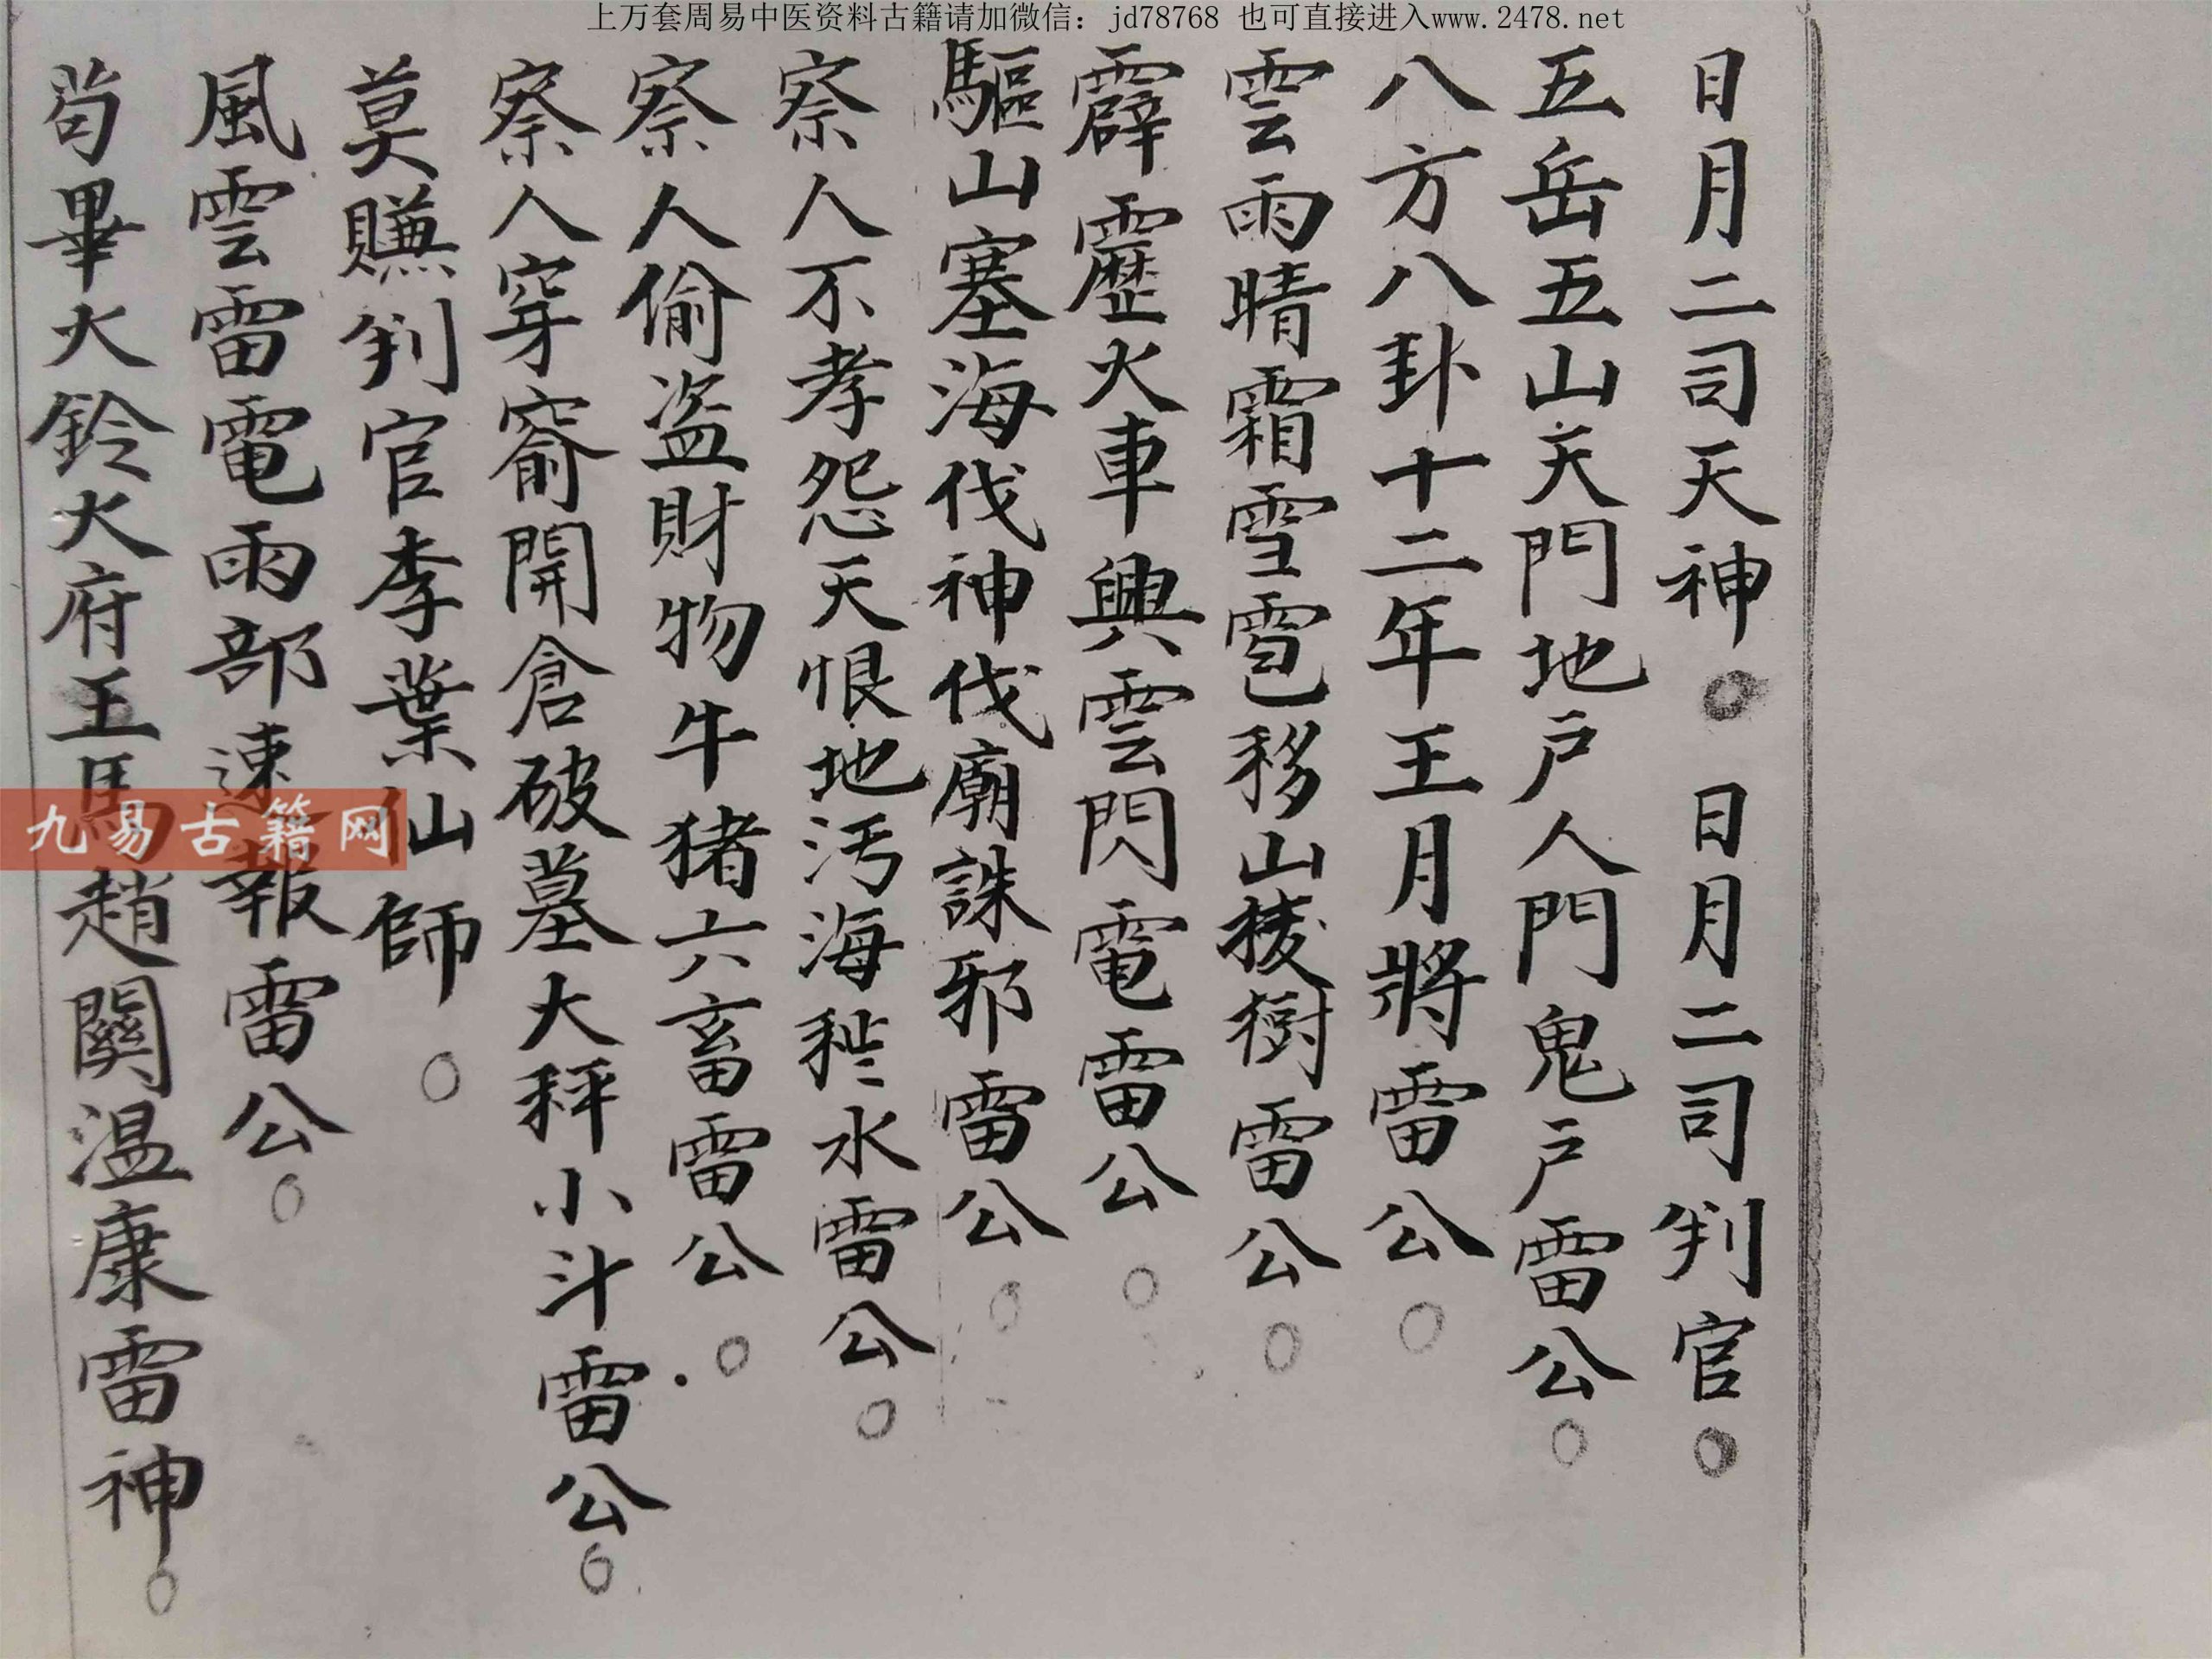 上万套周易中医资料古籍请加微信：jd78768 也可直接进入www.2478.net
日月二司天神。日月二司判官。
五岳五山天門地户人門鬼户雷公。
八方八卦十二年王月將雷公。
雲雨晴霜雪雹移山樹雷公。
霹靂火車興雲閃電雷公。
驅山塞海伐神伐廟誅邪雷公。
察人不孝怨天恨地污海水雷公。
察人偷盗財物牛猪六畜雷公。
察人穿窬開倉破墓大秤小斗雷公。
莫賺判官李葉仙師。
風雲雷電雨部速報雷公。
苟畢火鈴火府王馬趙關温康雷神。
九易古籍网